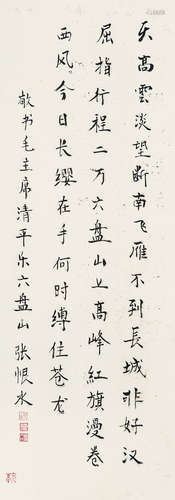 天高雲淡望断南飞雁不到長城非好汉
屈指行程二万六盘山上高峰紅旗漫卷
西风。今日长缨在手何时缚住苍龙
敬书毛主席清平乐六盘山 张恨水